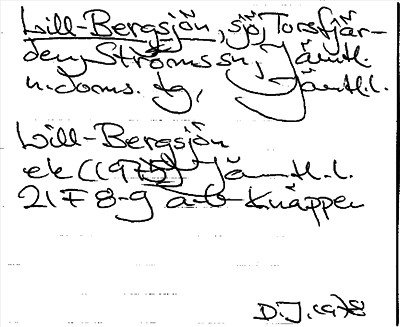 Lill-Bergsjön, sjö, Torsfjär-
den, Ströms sn, Jämtl.
n. doms. tg, Jämtl. l.
Lill-Bergsjön
ek (1975) Jämtl. l.
21 F 8-9 a-b Knäppen
D.J. 1978